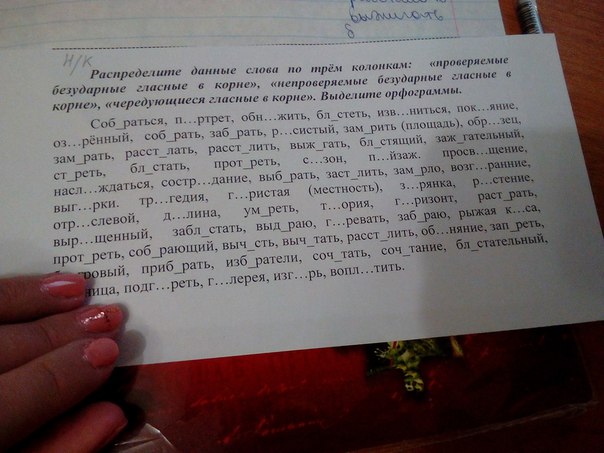 выжигать
Н/К
Распределите данные слова по трём колонкам: «проверяемые
безударные гласные в корне», «непроверяемые безударные гласные в
корне», «чередующиеся гласные в корне». Выделите орфограммы.
Соб_раться, п…ртрет, обн…жить, бл_стеть, изв…ниться, пок…яние,
оз…рённый, соб_рать, заб_рать, р…систый, зам_рить (площадь), обр…зец,
зам_рать, расст_лать, расст_лить, выж_гать, бл_стящий, заж_гательный,
ст_реть, бл_стать, прот_реть, с…зон, п…йзаж. просв…щение,
насл…ждаться, состр…дание, выб_рать, заст_лить, зам_рло, возг…рание,
выг…рки. тр…гедия, г…ристая (местность), з…рянка, р…стение,
отр…слевой, д…лина, ум_реть, т…ория, г…ризонт, раст_рать,
выр…щенный, забл_стать, выд_раю, г…ревать, заб_раю, рыжая к…са,
прот_реть, соб_рающий, выч_сть, выч_тать, расст_лить, об…няние, зап_реть,
гровый, приб_рать, изб_ратели, соч_тать, соч_тание, бл_стательный,
ница, подг…реть, г…лерея, изг…рь, вопл…тить.